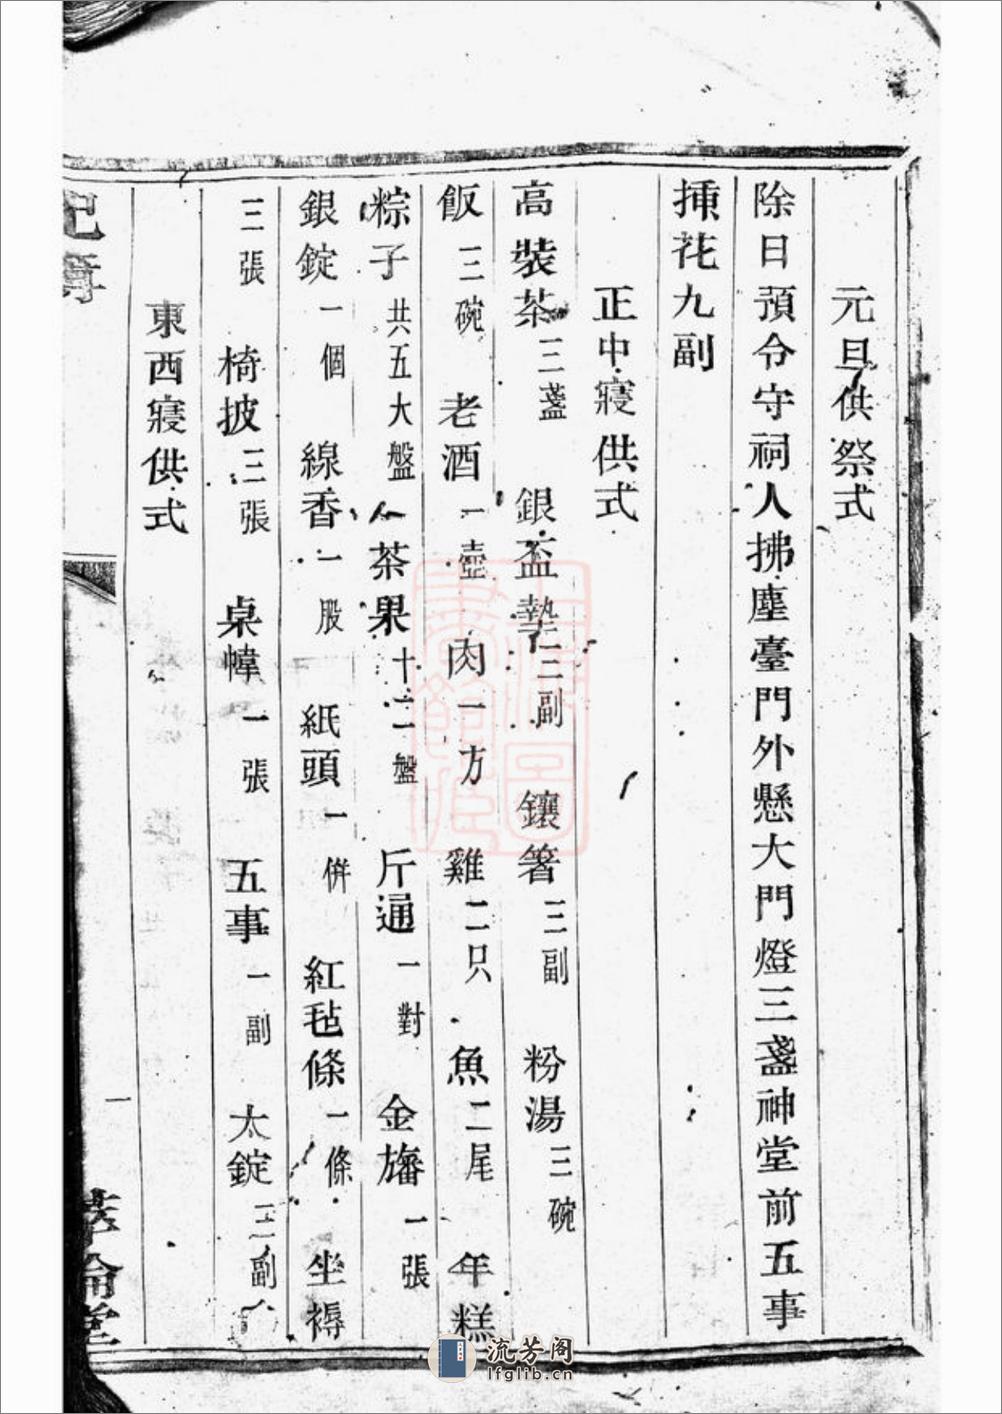 元旦供祭式
除日預令守祠人拂塵臺門外懸大門燈三盞神堂前五事
揷花九副
正中寢供式
高裝茶三盞 銀盃墊三副 鑲箸三副 粉湯三碗
飯三碗 老酒一壺 肉一方 雞二只 魚二尾 年糕
粽子共五大盤 茶果十二盤 斤通一對 金旛一張
銀錠一個 線香一股 紙頭一併 紅毡條一條 坐褥
三張 椅披三張 桌幃一張 五事一副 太錠三副
東西寢供式
一
流芳阁
lfglib.cn